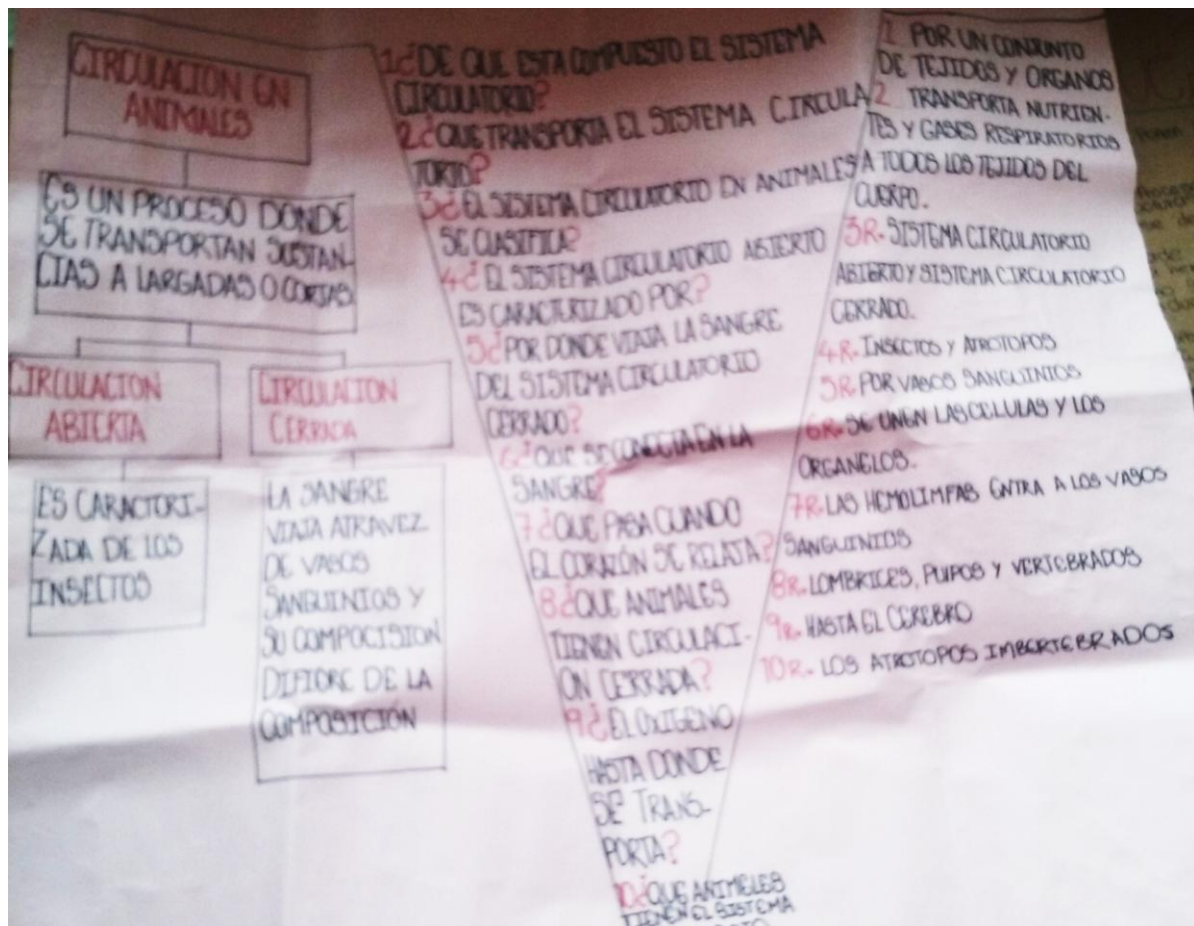 CIRCULACION EN
ANIMALES
ES UN PROCESO DONDE
SE TRANSPORTAN SUSTAN-
CIAS A LARGADAS O CORTAS
CIRCULACION
ABIERTA
CIRCULACION
CERRADA
ES CARACTORI-
ZADA DE LOS
INSECTOS
LA SANGRE
VIAJA ATRAVEZ
DE VASOS
SANGUINIOS Y
SU COMPOCISION
DIFIORE DE LA
COMPOSICIÓN
1¿DE QUE ESTA COMPUESTO EL SISTEMA
CIRCULATORIO?
2¿QUE TRANSPORTA EL SISTEMA CIRCULA
TORIO?
3¿EL SISTEMA CIRCULATORIO EN ANIMALES
SE CLASIFICA?
4¿EL SISTEMA CIRCULATORIO ABIERTO
ES CARACTERIZADO POR?
5¿POR DONDE VIAJA LA SANGRE
DEL SISTEMA CIRCULATORIO
CERRADO?
6¿QUE SE CONECTA EN LA
SANGRE?
7¿QUE PASA CUANDO
EL CORAZÓN SE RELAJA?
8¿QUE ANIMALES
TIENEN CIRCULACI-
ON CERRADA?
9¿EL OXIGENO
HASTA DONDE
SE TRANS-
PORTA?
10¿QUE ANIMELES
TIENEN EL SISTEMA
1 POR UN CONJUNTO
DE TEJIDOS Y ORGANOS
2 TRANSPORTA NUTRIEN-
TES Y GASES RESPIRATORIOS
A TODOS LOS TEJIDOS DEL
CUERPO.
3R. SISTEMA CIRCULATORIO
ABIERTO Y SISTEMA CIRCULATORIO
CERRADO.
4R. INSECTOS Y ATROTOPOS
5R. POR VASOS SANGUINIOS
6R. SE UNEN LAS CELULAS Y LOS
ORGANELOS.
7R. LAS HEMOLIMFAS ENTRA A LOS VASOS
SANGUINIOS
8R. LOMBRICES, PULPOS Y VERTEBRADOS
9R. HASTA EL CEREBRO
10R. LOS ATROTOPOS IMBERTEBRADOS